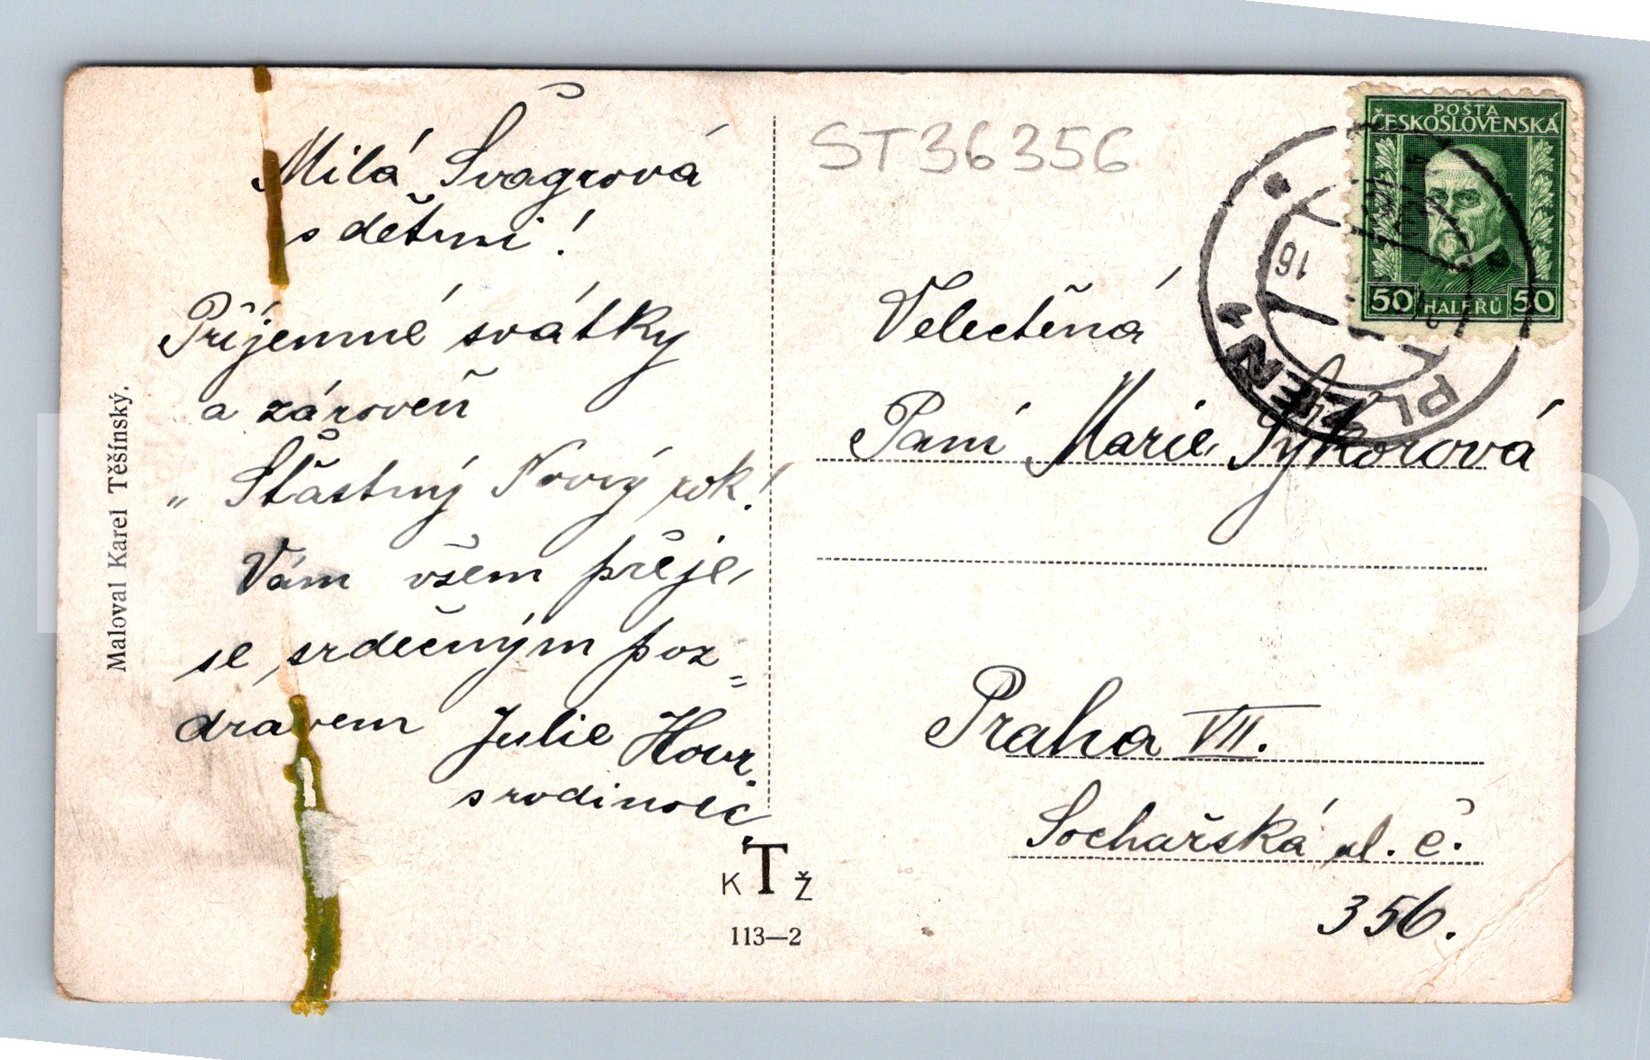 Milá Švagrová
s dětmi!
Příjemné svátky
a zároveň
„ Šťastný Nový rok!
Vám všem přeje,
se srdečným poz=
dravem Julie Hour.
s rodinou
Maloval Karel Těšínský.
K T Ž
113—2
ST36356
POŠTA
ČESKOSLOVENSKÁ
50 HALÉŘŮ 50
PLZEŇ
16
Velectěná
Paní Marie Sýkorová
Praha VII.
Sochařská ul. č.
356.